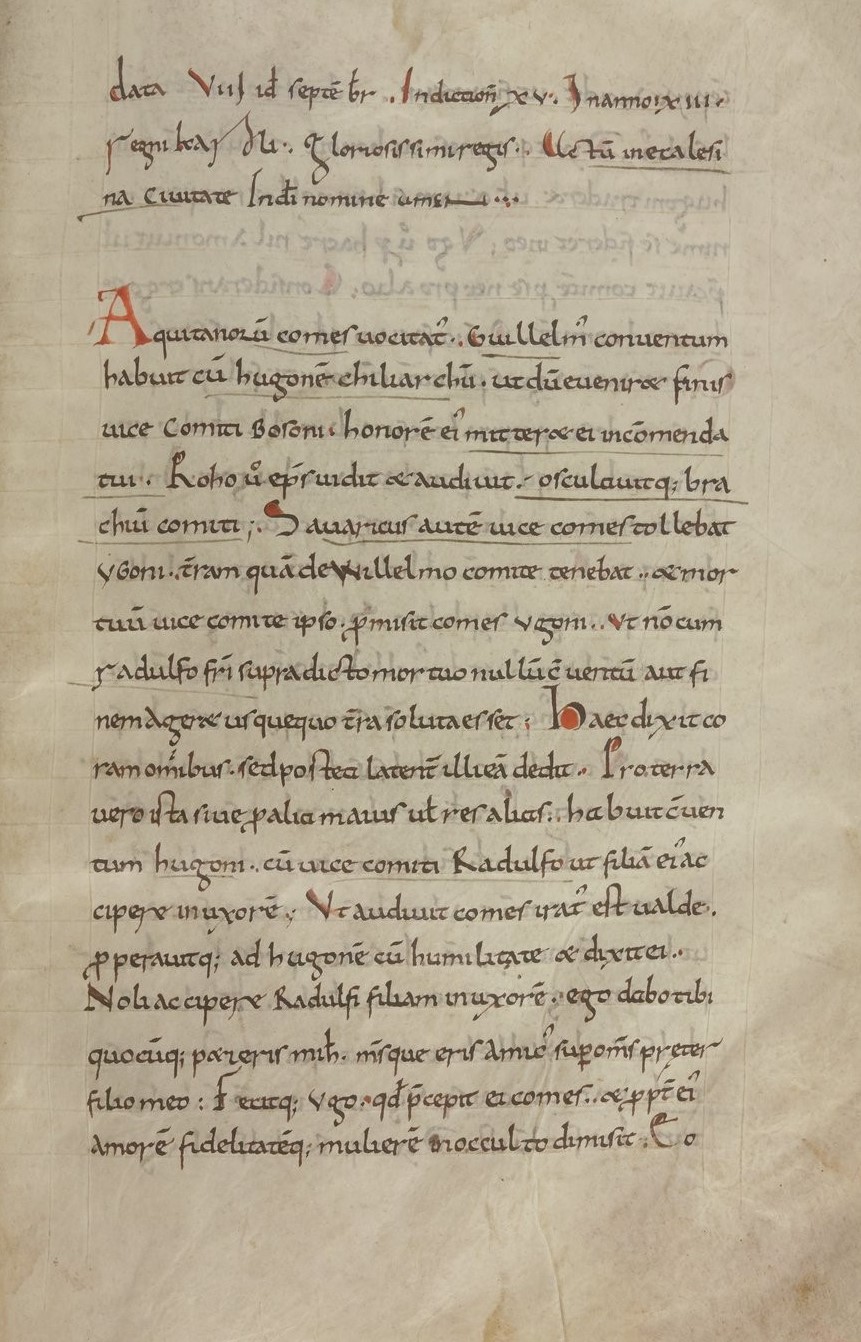 data VIII id septēbr. Indictioñ xv. In anno xiiii.
regni karoli. Gloriosissimi regis. Actū in etalesi
na civitate In dī nomine amen
Aquitanorū comes vocitat᷒. Guillelm᷒ conventum
habuit cū hugonē chiliarchū. ut dū evenir& finis
vice Comiti Bosoni. honorē ei᷒ mitter& ei incōmenda
tui. Roho ů ep̄s vidit & audivit. osculavitq; bra
chiū comiti; Savaricus autē vice comes tollebat
Vgoni. t̄ram quā de Willelmo comite tenebat. & mor
tuū vice comite ipso. ꝓmisit comes Vgoni. Vt nō cum
radulfo fr̄i supradicto mortuo nullū c̄ventū aut fi
nem Ager& usquequo t̄ra soluta esset; Haec dixit co
ram om̄ibus. sed postea latent̄ illi eā dedit. Pro terra
vero ista sive ꝓ alia maius ut̄ res alias. habuit c̄ven
tum hugoni. cū vice comiti Radulfo ut filiā ei᷒ ac
ciper& in uxorē; Vt audivit comes irat᷒ est valde.
ꝓperavitq; ad hugonē cū humilitate & dixit ei.
Noli accipere Radulfi filiam in uxorē. ego dabo tibi
quocūq; p&ieris mih̄. m̄sque eris Amic᷒ sup om̄s preter
filio meo: Fecitq; Vgo. qd̄ p̄cepit ei comes. & ꝓpt̄ ei᷒
Amorē fidelitatēq; mulierē in occulto dimisit. Eo